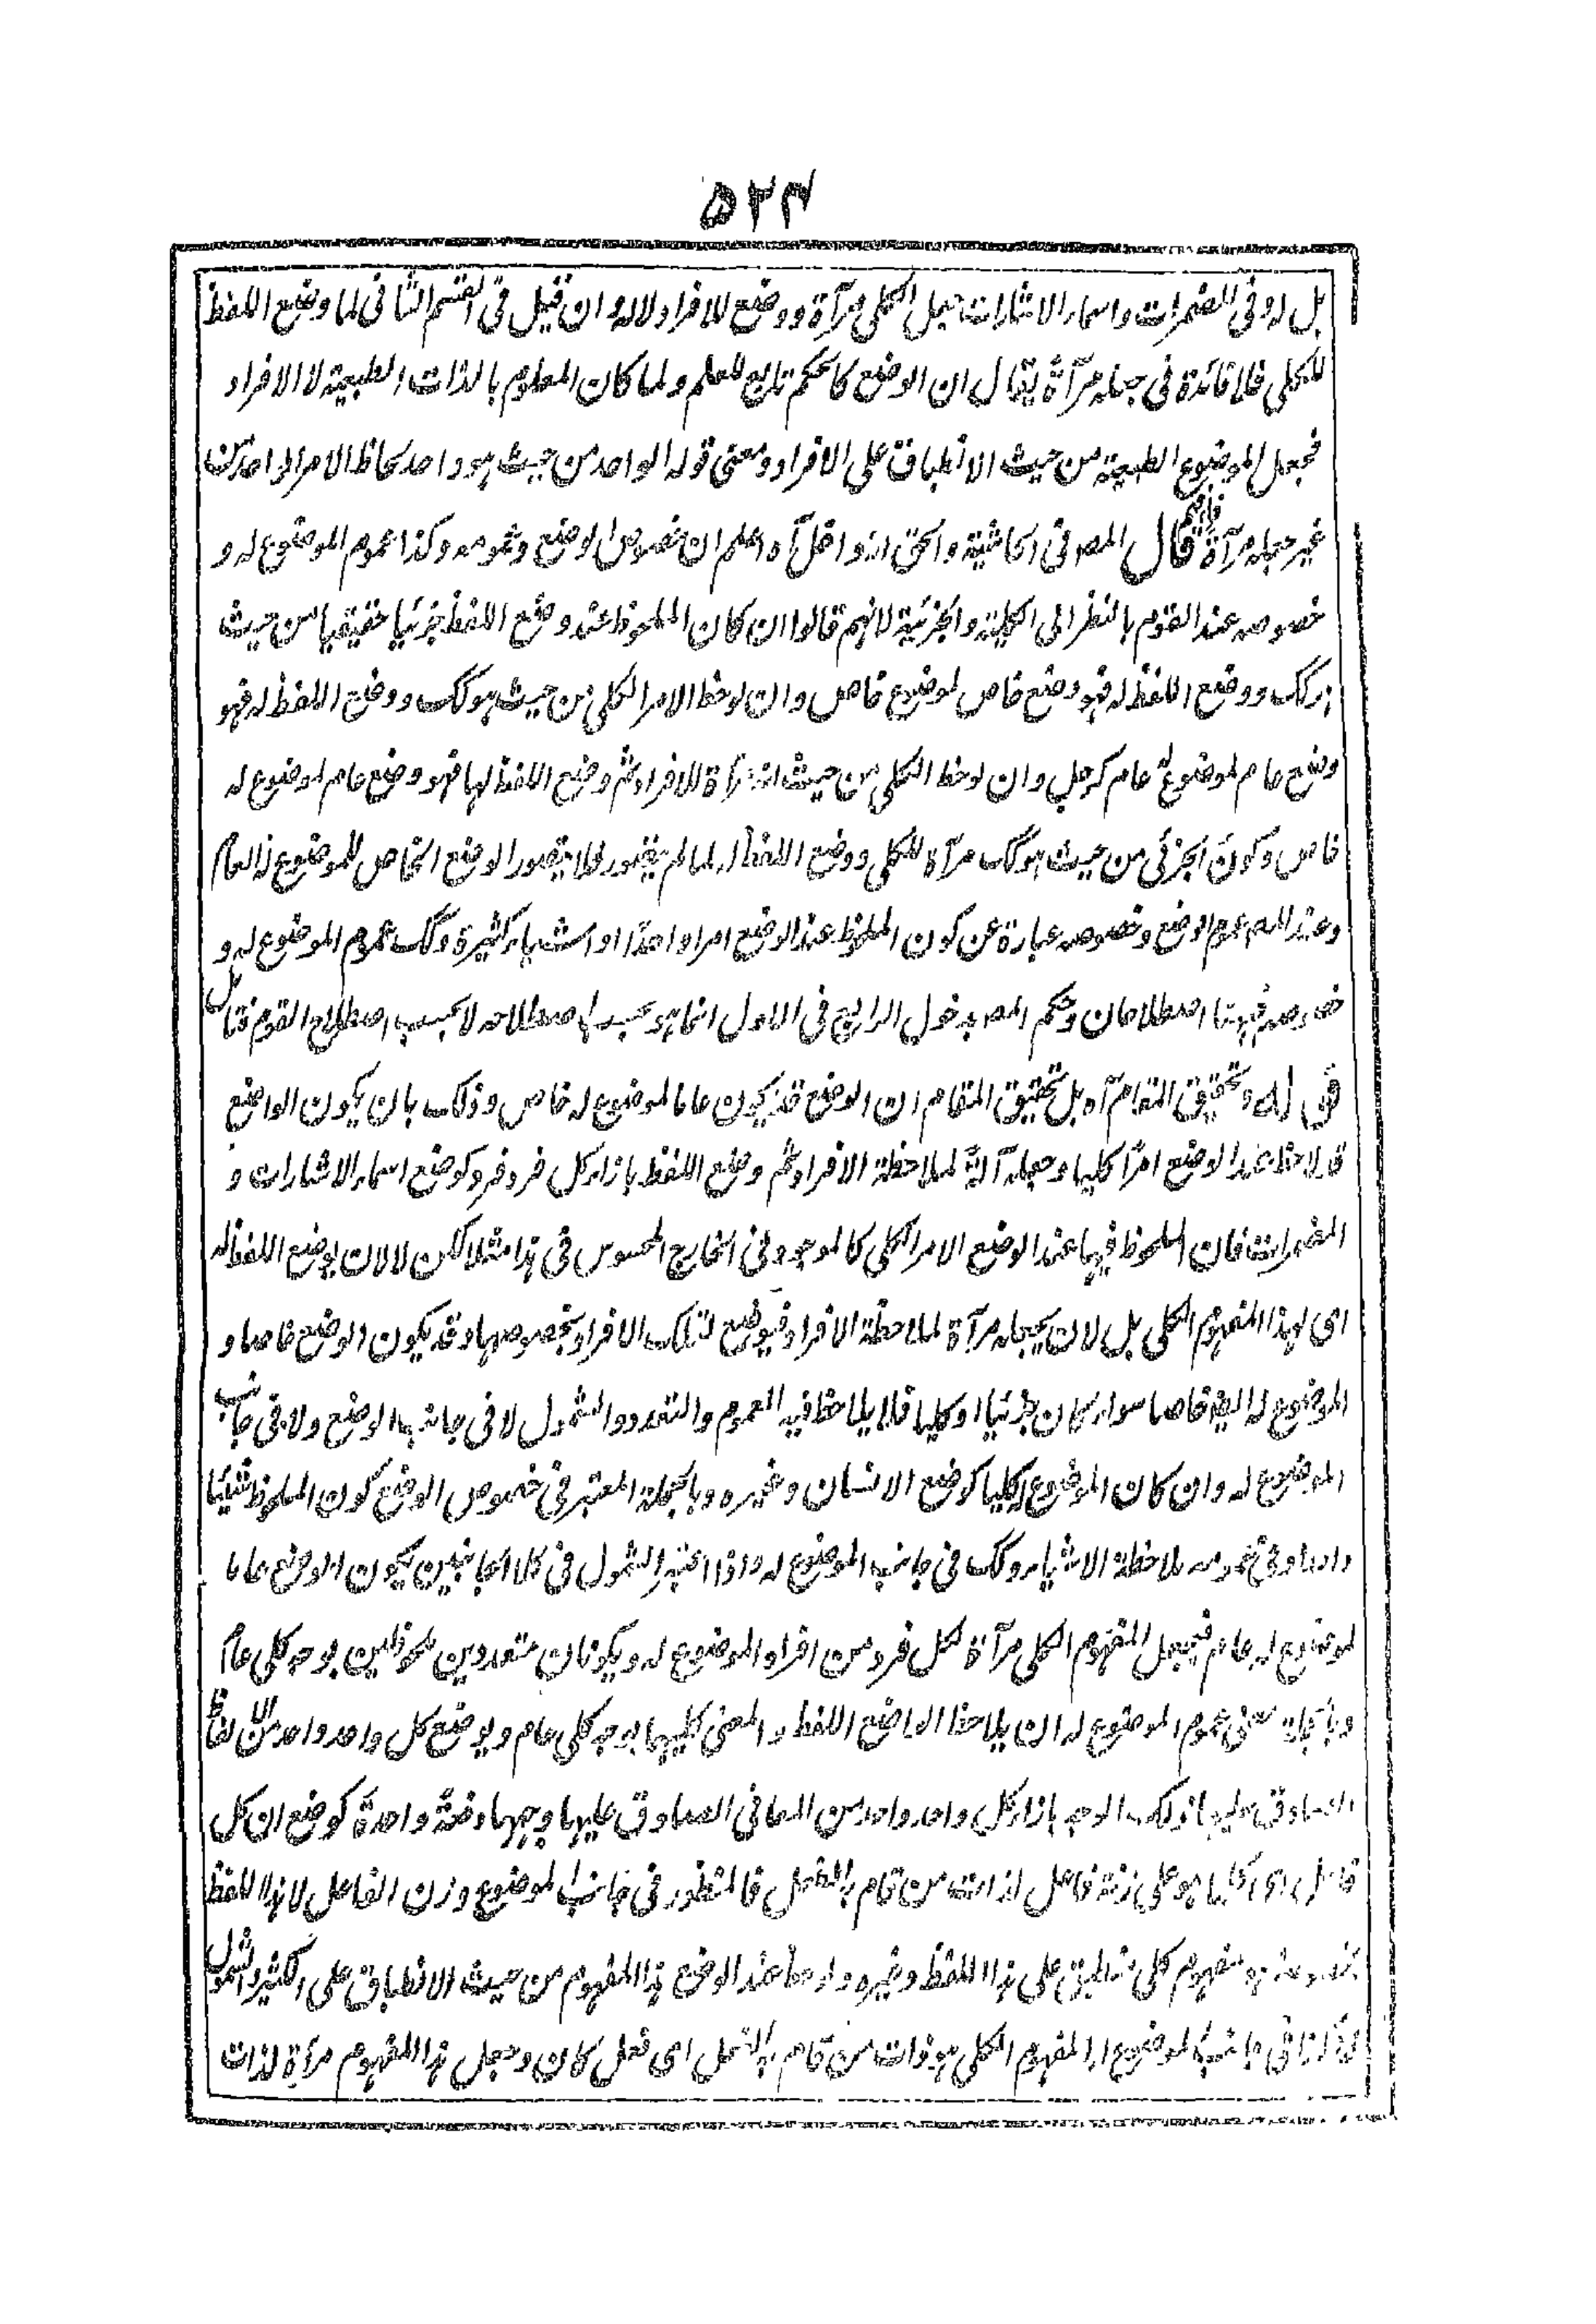 ٥٢٣
بل له وفى المضمرات واسماء الاشارات جعل الكلى مرآة ووضع للافراد لا له وان قيل فى القسم الثانى لما وضع اللفظ
للكلى فلا فائدة فى جعله مرآة يقال ان الوضع كالحكم تابع للعلم ولما كان المعلوم بالذات الطبيعة لا الافراد
فجعل الموضوع الطبيعة من حيث الانطباق على الافراد ومعنى قوله الواحد من حيث هو واحد لحاظ الامر الواحد من
غير جعله مرآة فافهم قال المصـ فى الحاشية والحق انه داخل آه اعلم ان خصوص الوضع وعمومه وكذا عموم الموضوع له و
خصوصه عند القوم بالنظر الى الكلية والجزئية لانهم قالوا ان كان الملحوظ عند وضع اللفظ جزئيا حقيقيا من حيث
هو كك ووضع اللفظ له فهو وضع خاص لموضوع خاص وان لوحظ الامر الكلى من حيث هو كك ووضع اللفظ له فهو
وضع عام لموضوع له عام كرجل وان لوحظ الكلى من حيث انه مرآة للافراد ثم وضع اللفظ لها فهو وضع عام لموضوع له
خاص وكون الجزئى من حيث هو كك مرآة للكلى ووضع اللفظ له لما لم يتصور فلا يتصور الوضع الخاص للموضوع له العام
وعند المصـ عموم الوضع وخصوصه عبارة عن كون الملحوظ عند الوضع امرا واحدا او اشياء كثيرة وكك عموم الموضوع له و
خصوصه فههنا اصطلاحان وحكم المصـ بدخول الرابع فى الاول انما هو بحسب اصطلاحه لا بحسب اصطلاح القوم فتامل
قوله وتحقيق المقام آه بل تحقيق المقام ان الوضع قد يكون عاما لموضوع له خاص وذلك بان يكون الواضع
قد لاحظ عند الوضع امرا كليا وجعله آلة لملاحظة الافراد ثم وضع اللفظ بازاء كل فرد فرد كوضع اسماء الاشارات و
المضمرات فان الملحوظ فيها عند الوضع الامر الكلى كالموجود فى الخارج المحسوس فى هذا مثلا لكن لا لان يوضع اللفظ له
اى لهذا المفهوم الكلى بل لان يجعله مرآة لملاحظة الافراد فيوضع لتلك الافراد بخصوصها وقد يكون الوضع خاصا و
الموضوع له ايضا خاصا سواء كان جزئيا او كليا فلا يلاحظ فيه العموم والتعدد والشمول لا فى جانب الوضع ولا فى جانب
الموضوع له وان كان الموضوع له كليا كوضع الانسان وغيره وبالجملة المعتبر فى خصوص الوضع كون الملحوظ شيئا
واحدا وفى عمومه ملاحظة الاشياء وكك فى جانب الموضوع له واذا اعتبر الشمول فى كلا الجانبين يكون الوضع عاما
لموضوع له عام فيجعل المفهوم الكلى مرآة لكل فرد من افراد الموضوع له ويكونان متعددين ملحوظين بوجه كلى عام
وبالجملة معنى عموم الموضوع له ان يلاحظ الواضع اللفظ والمعنى كليهما بوجه كلى عام ويوضع كل واحد واحد من الالفاظ
الصادق عليها ذلك الوجه بازاء كل واحد واحد من المعانى الصادق عليها وجهها دفعة واحدة كوضع ان كل
فاعل اى كل ما هو على زنة فاعل لذات من قام به الفعل فالمنظور فى جانب الموضوع وزن الفاعل لا هذا اللفظ
بخصوصه وهو مفهوم كلى منطبق على هذا اللفظ وغيره ولوحظ عند الوضع هذا المفهوم من حيث الانطباق على الكثير والشمول
فى جانب الموضوع له المفهوم الكلى هو ذات من قام به الفعل اى فعل كان وجعل هذا المفهوم مرآة لذات